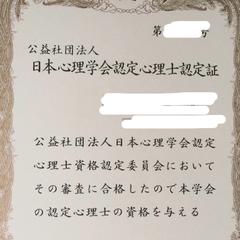 第 号
公益社団法人
日本心理学会認定心理士認定証
公益社団法人日本心理学会認定
心理士資格認定委員会において
その審査に合格したので本学会
の認定心理士の資格を与える